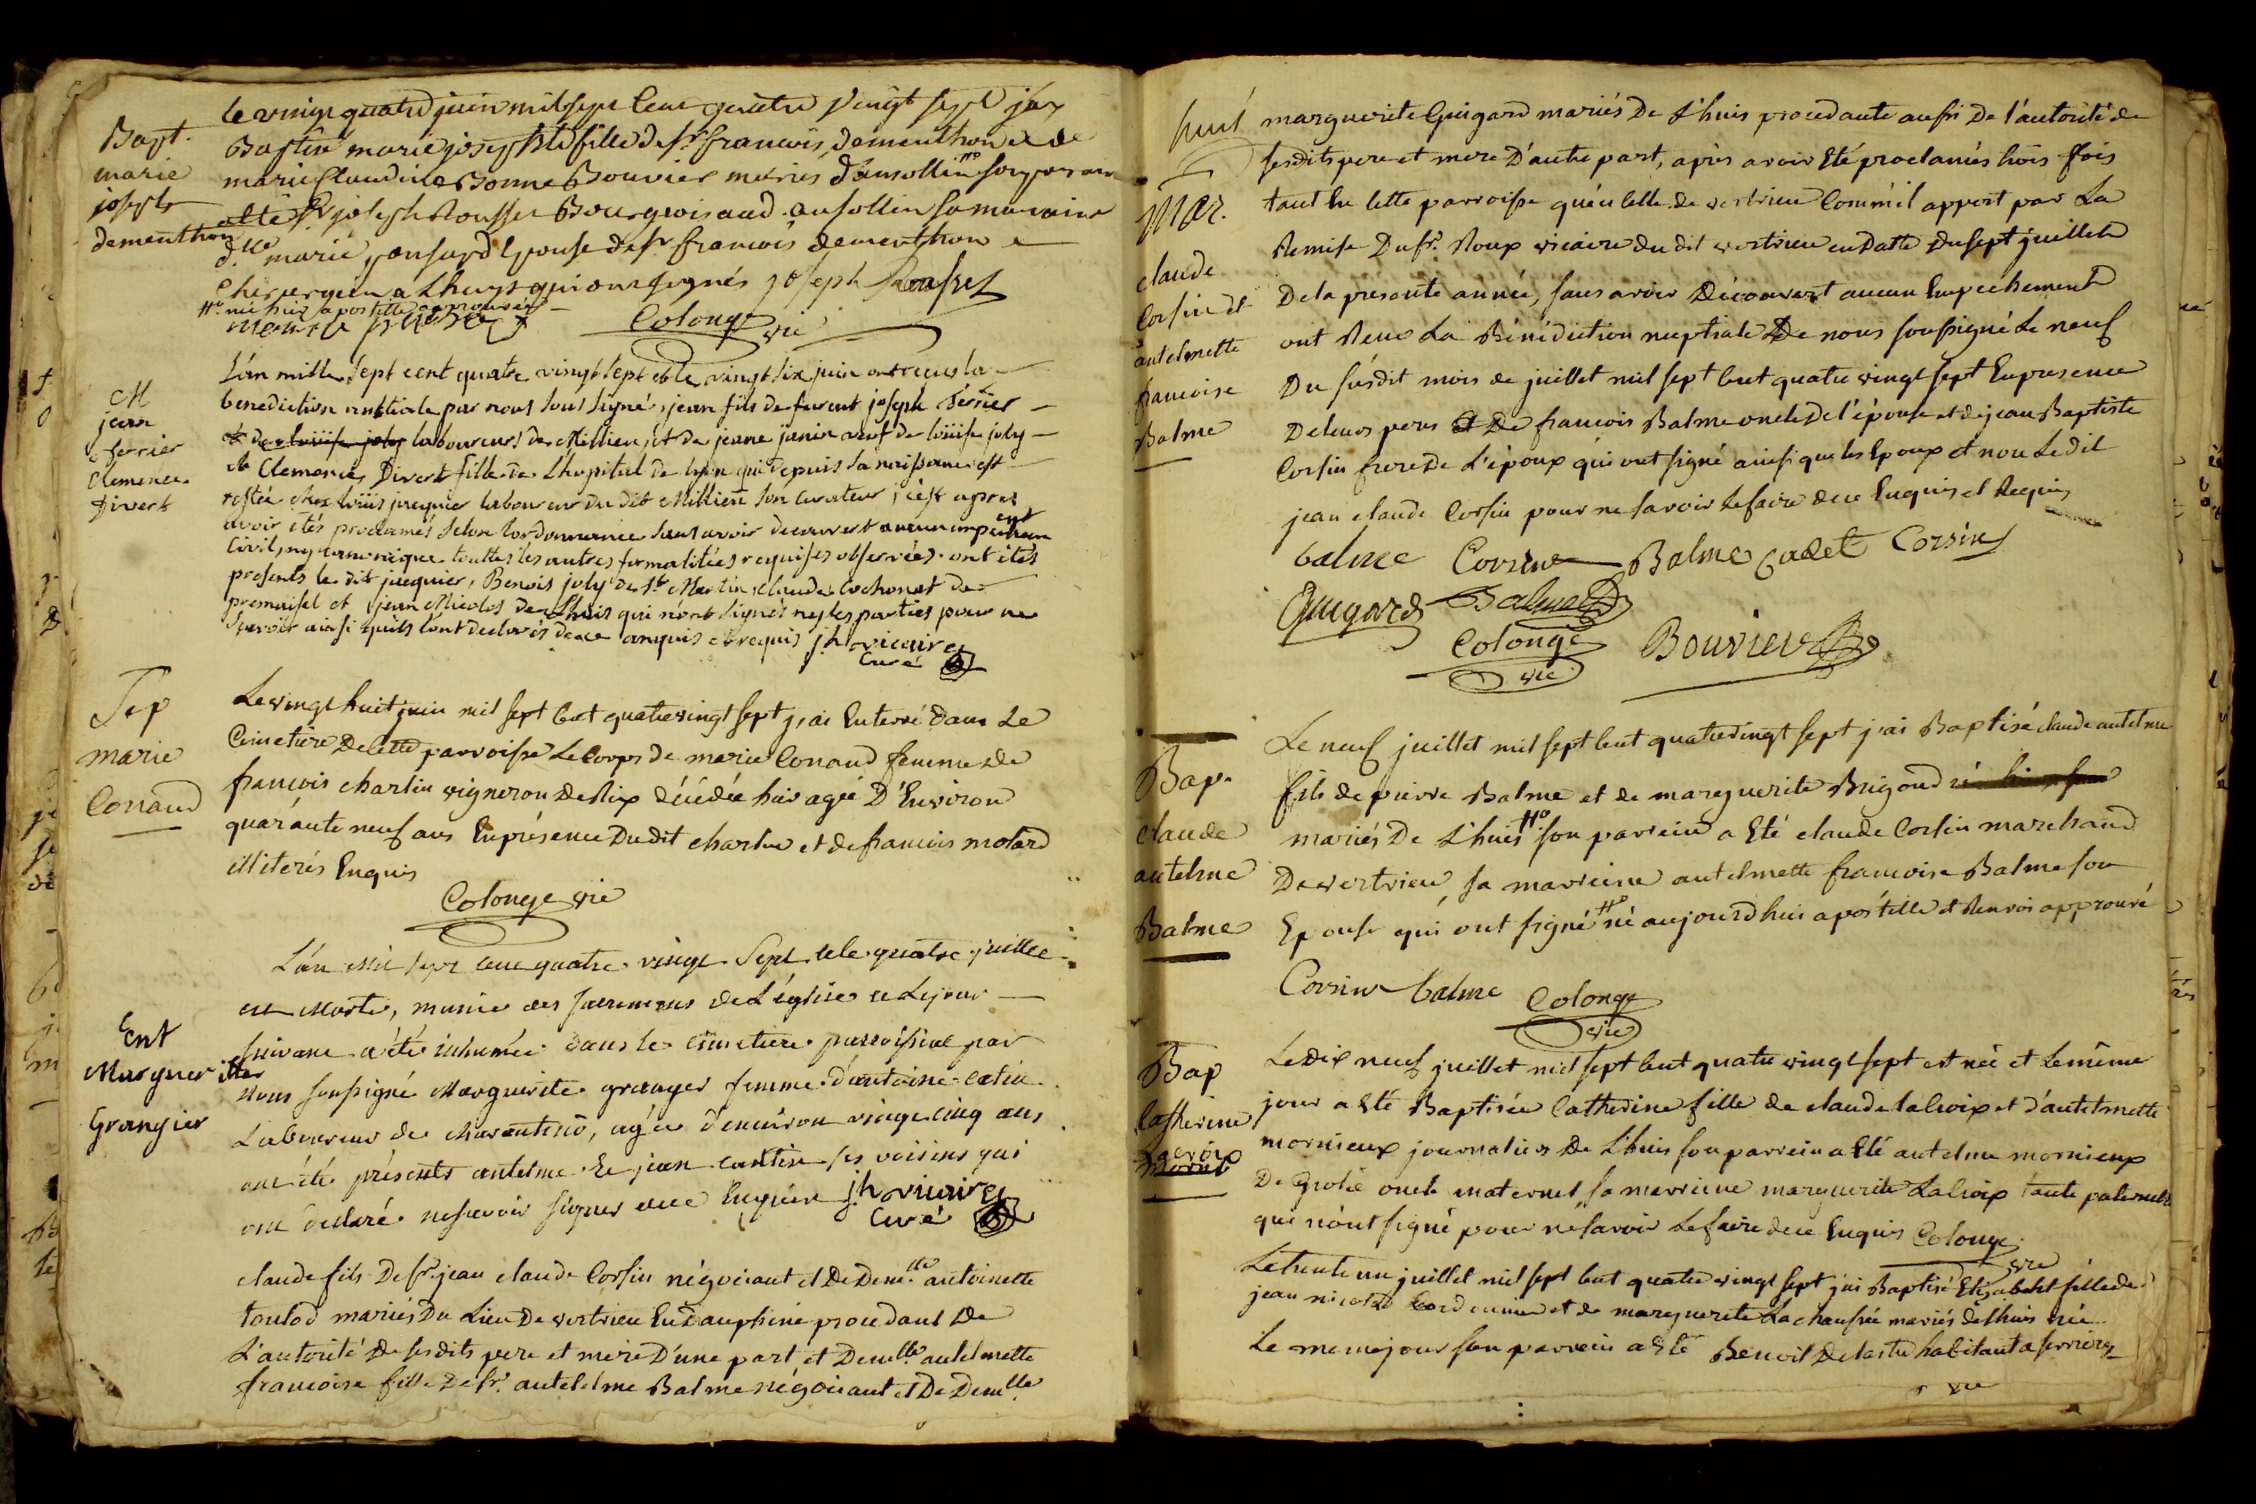 Bapt.
marie
joseph
dementhon
le vingt quatre juin mil sept cent quatre vingt sept j'ay
Baptisé marie josephte fille de sr francois dementhon et de
marie Claudine Bonne Bouvier mariés d'ansollin son parain
a été sr joseph Rousset Bourgeois aud. ansollin sa maraine
dlle marie ponsard Epouse de sr francois dementhon
a Lhuys qui ont signés joseph Rousset
née hier apostille approuvée
Colonge vic
M
jean
ferrier
Clemence
Divert
L'an mille sept cent quatre vingt sept et le vingt six juin ont reçus la
benediction nuptiale par nous sous signé, jean fils de furent joseph ferrier
et de loüise joly laboureurs de Millieu, et de jeane janin veuf de loüise joly
et Clemence Divert fille de L'hopital de lyon qui depuis sa naissance est
restée chez loüis jacquier laboureur du dit Millieu son curateur, c'est apres
avoir étés proclamés selon l'ordonnance sans avoir decouvert aucun empechement
civil, ny canonique touttes les autres formalitées requises observées. ont étés
presents le dit jacquier, Benois joly de St Martin, Claude cochonat de
premaisel et jean Nicolos de Lhuis qui n'ont signés ny les parties pour ne
sçavoir ainsi quils l'ont declarés de ce enquis et requis jh vicaire
Curé
Sep
marie
Conand
Le vingt huit juin mil sept Cent quatrevingt sept j'ai Enterré dans Le
Cimetiere De cette parroisse Le Corps de marie Conand femme de
francois charlin vigneron de Rix décédée hier agée D'Environ
quarante neuf ans En présence Du dit charlin et de francois motard
illiterés Enquis
Colonge vic
Ent
Margueritte
Grangier
L'an Mil sept cent quatre vingt Sept et le quatre juillet
est Morte, munie des sacremens de L'église et Le jour
suivant a été inhumée dans le cimetiere parroissial par
Nous soussigné Marguerite grangier femme d'antoine catin
Laboureur de charentenô, agée d'environ vingt cinq ans
ont été présents antelme et jean cantin ses voisins qui
ont declaré ne sçavoir signer de ce Enquiere jh vicaire
Curé
claude fils De sr. jean claude Corsin négociant et De Demlle antoinette
toulod mariés Du Lieu De vertrieu En Dauphiné procedant De
L'autorité De ses dits pere et mere D'une part et Demlle antelmette
francoise fille De sr. antelelme Balme négociant et De Demlle
suit
Mar.
claude
Corsin et
antelmette
francoise
Balme
marguerite Guigard mariés De L'huis procedante aussi De l'autorité de
ses dits pere et mere D'autre part, après avoir Eté proclamés trois fois
tant En cette parroisse qu'en celle de vertrieu Comm'il appert par La
Remise Du sr. Roux vicaire du dit vertrieu en datte Du sept juillet
De la présente année, sans avoir Découvert aucun Empechement
ont Recu La Bénédiction nuptiale De nous soussigné Le neuf
Du susdit mois de juillet mil sept Cent quatre vingt sept En presence
De leurs peres et De francois Balme oncle De l'épouse et de jean Baptiste
Corsin frere De L'époux qui ont signé ainsi que les Epoux et non Le dit
jean claude Corsin pour ne savoir Le faire de ce Enquis et Requis
balme Corsin Balme Cadet Corsin
Guigard Balme
Colonge Bouvier
vic
Bap.
claude
antelme
Balme
Le neuf juillet mil sept Cent quatrevingt sept j'ai Baptisé claude antelme
fils de pierre Balme et de marguerite Brigoud
mariés De L'huis son parrein a Eté claude Corsin marchand
De vertrieu, sa marreine antelmette francoise Balme son
Epouse qui ont signé né aujourd'hui apostille et Renvoi approuvé
Corsin balme Colonge
vic
Bap
Catherine
Lacroix
Le Dix neuf juillet mil sept Cent quatre vingt sept est née et Le même
jour a Eté Baptisée Catherine fille de claude Lacroix et d'antelmette
mornieux journaliers De L'huis son parrein a Eté antelme mornieux
De Grolé oncle maternel sa marreine marguerite Lacroix tante paternelle
qui n'ont signé pour ne savoir Le faire de ce Enquis Colonge
vic
Le trente un juillet mil sept Cent quatre vingt sept j'ai Baptisé Elisabeht fille de
jean nicolas Cordonnier et de marguerite La chaussée mariés de Lhuis née
Le meme jour son parrein a Eté Benoit Delastre habitant a serriere
vic